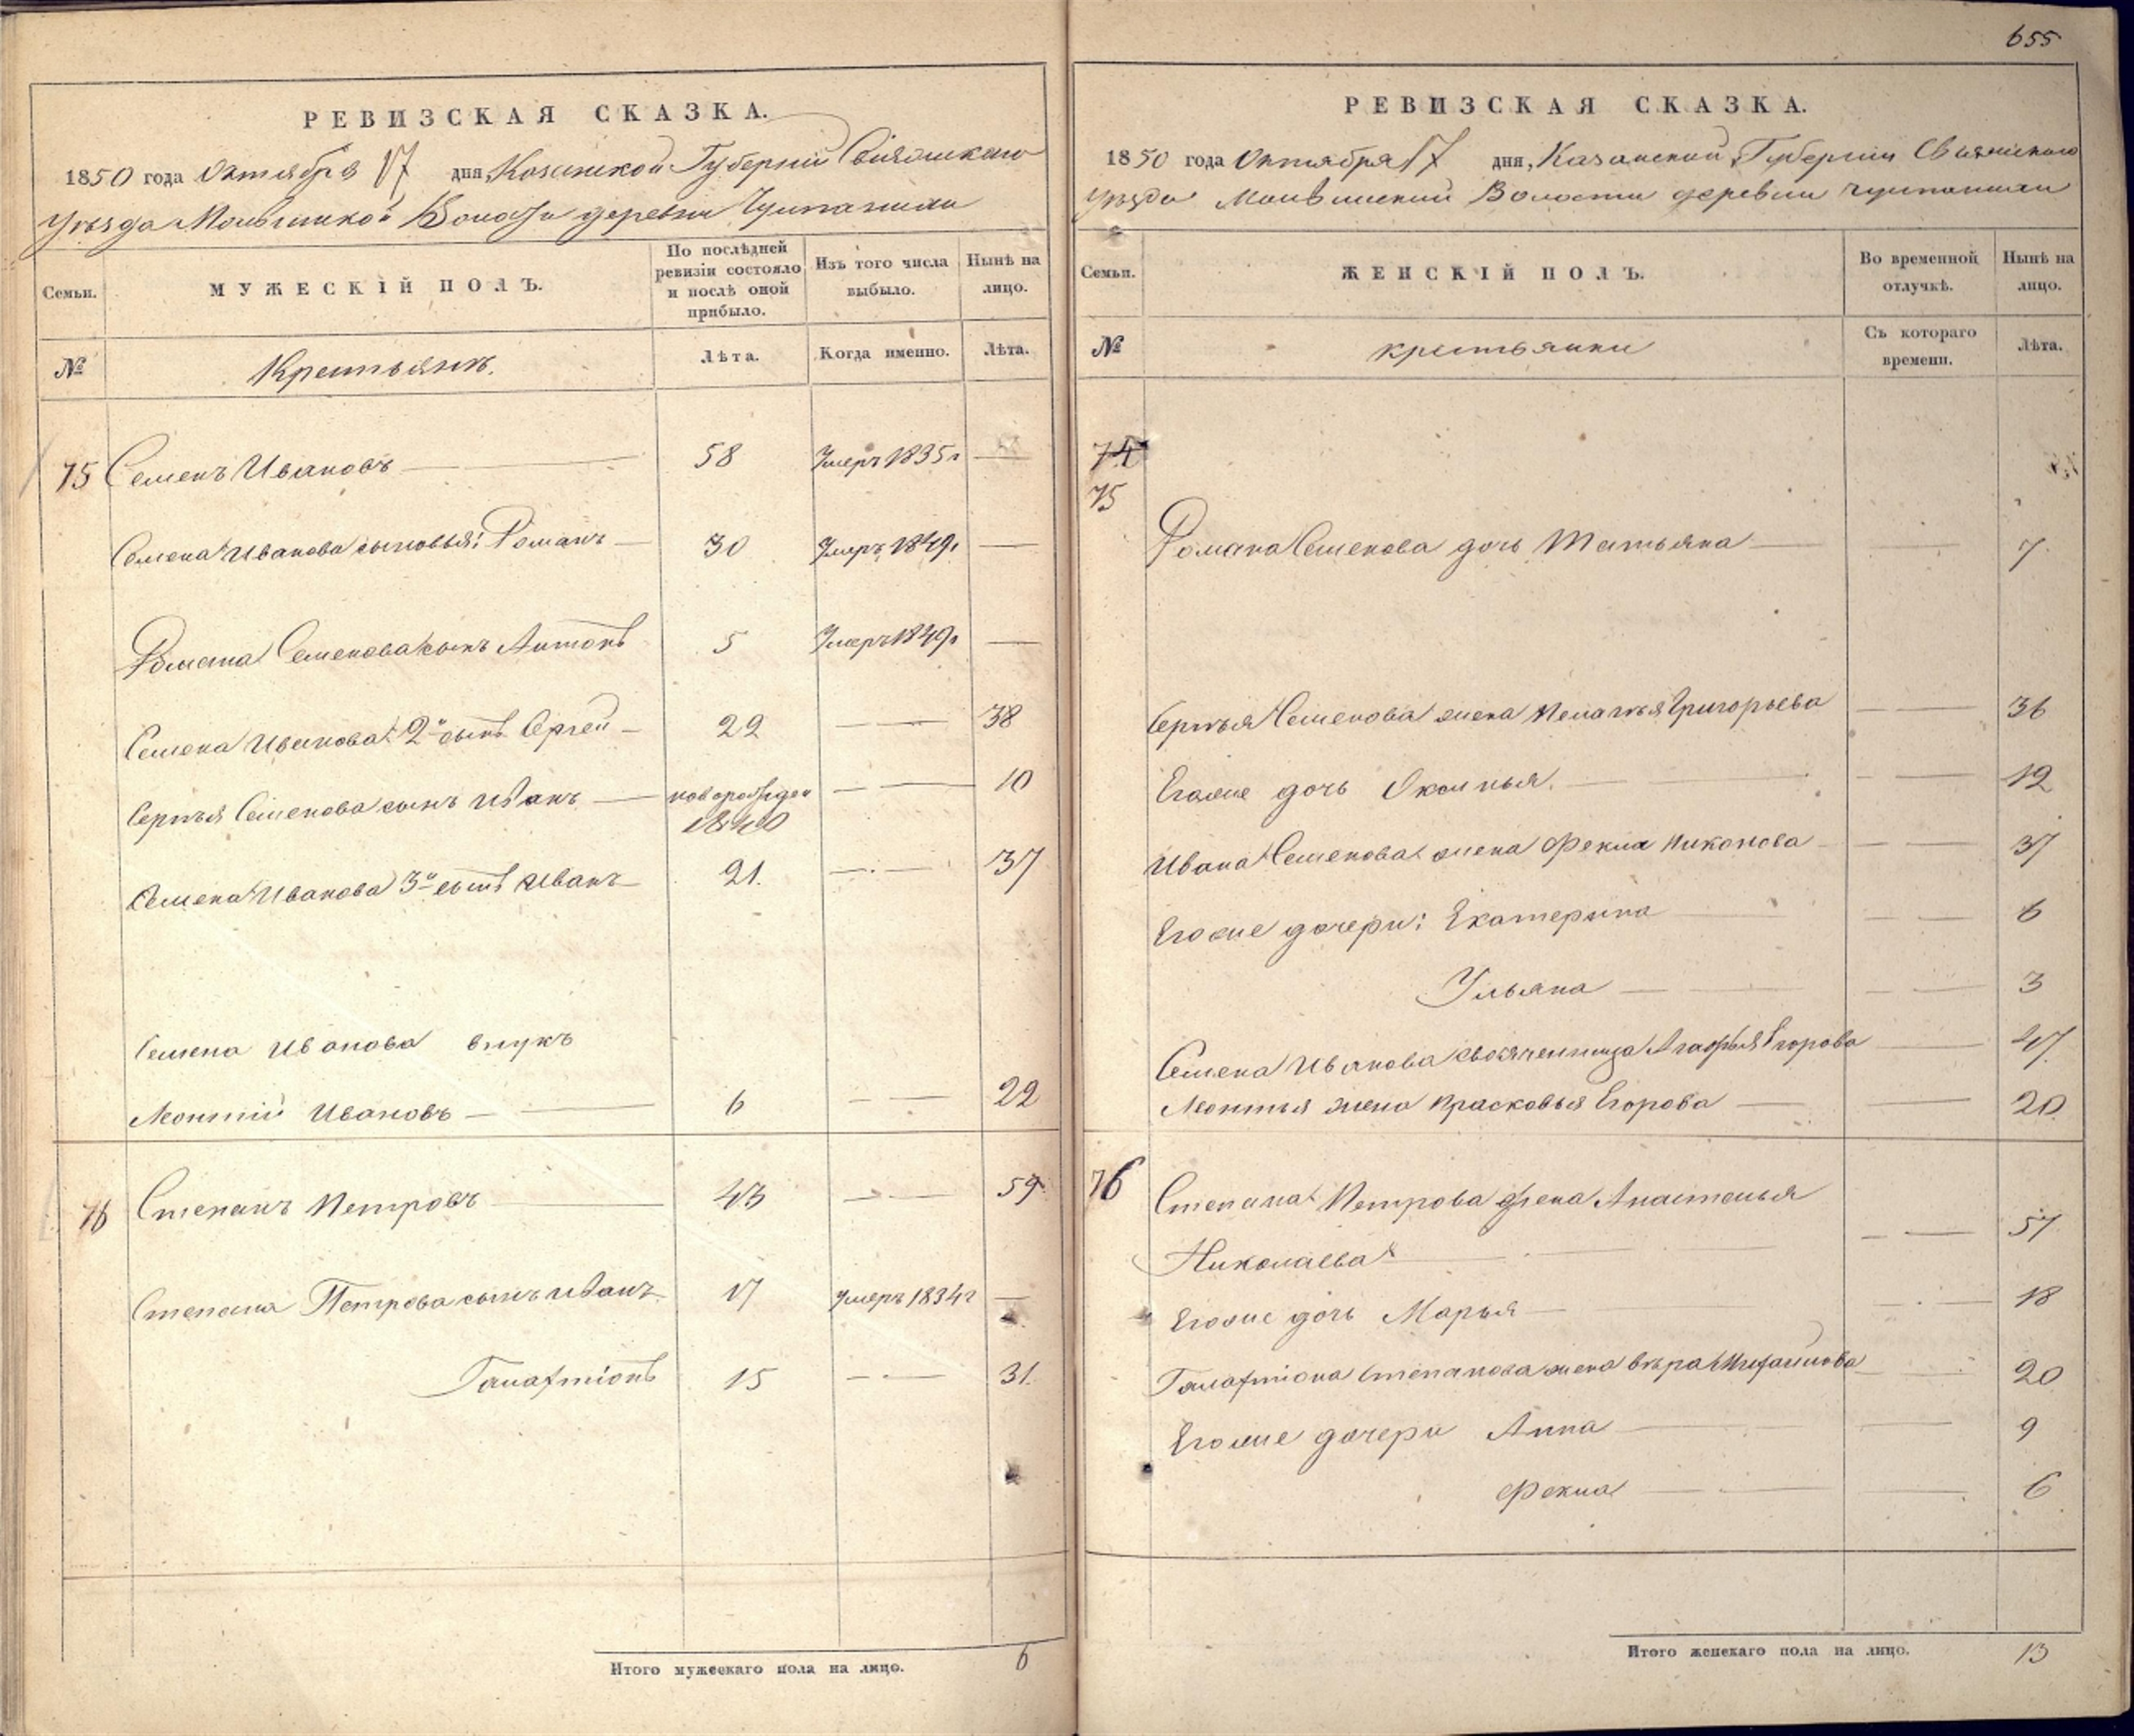 655
РЕВИЗСКАЯ СКАЗКА.
1850 года Октября 17 дня, Казанской Губернии Свіяжскаго
Уѣзда Волости деревни
Семьи.
МУЖЕСКІЙ ПОЛЪ.
По послѣдней ревизіи состояло и послѣ оной прибыло.
Изъ того числа выбыло.
Нынѣ на лицо.
№
Крестьянъ.
Лѣта.
Когда именно.
Лѣта.
75 Семенъ Ивановъ — 58 Умеръ 1835г —
Семена Иванова сыновья: Романъ — 30 Умеръ 1849г —
Романа Семенова сынъ Антонъ 5 Умеръ 1849г —
Семена Иванова 2й сынъ Сергей — 22 — — 38
Сергѣя Семенова сынъ Иванъ — новорожден 1840 — — 10
Семена Иванова 3й сынъ Иванъ — 21. — — 37
Семена Иванова внукъ
Леонтій Ивановъ — 6 — — 22
76 Степанъ Петровъ — 43 — — 59
Степана Петрова сынъ Иванъ 17 Умеръ 1834г —
Галактіонъ 15 — — 31.
Итого мужескаго пола на лицо. 6
РЕВИЗСКАЯ СКАЗКА.
1850 года Октября 17 дня, Казанской Губернии Свияжскаго
Уѣзда Волости деревни
Семьи.
ЖЕНСКІЙ ПОЛЪ.
Во временной отлучкѣ.
Нынѣ на лицо.
№
крестьянки
Съ котораго времени.
Лѣта.
74
75
Романа Семенова дочь Татьяна — — 7.
Сергѣя Семенова жена Пелагѣя Григорьева — — 36
Егоже дочь — — 12
Ивана Семенова жена Фекла Никонова — — 37
Егоже дочери: Екатерина — — 6
Ульяна — — 3
Семена Иванова свояченница Агафья Егорова — 47.
Леонтья жена Прасковья Егорова — — 20.
76 Степана Петрова жена Анастасья
Николаева — — 57.
Егоже дочь Марья — — 18
Галактіона Степанова жена Вѣра — 20
Егоже дочери Анна — — 9
Фекла — — 6
Итого женскаго пола на лицо. 13